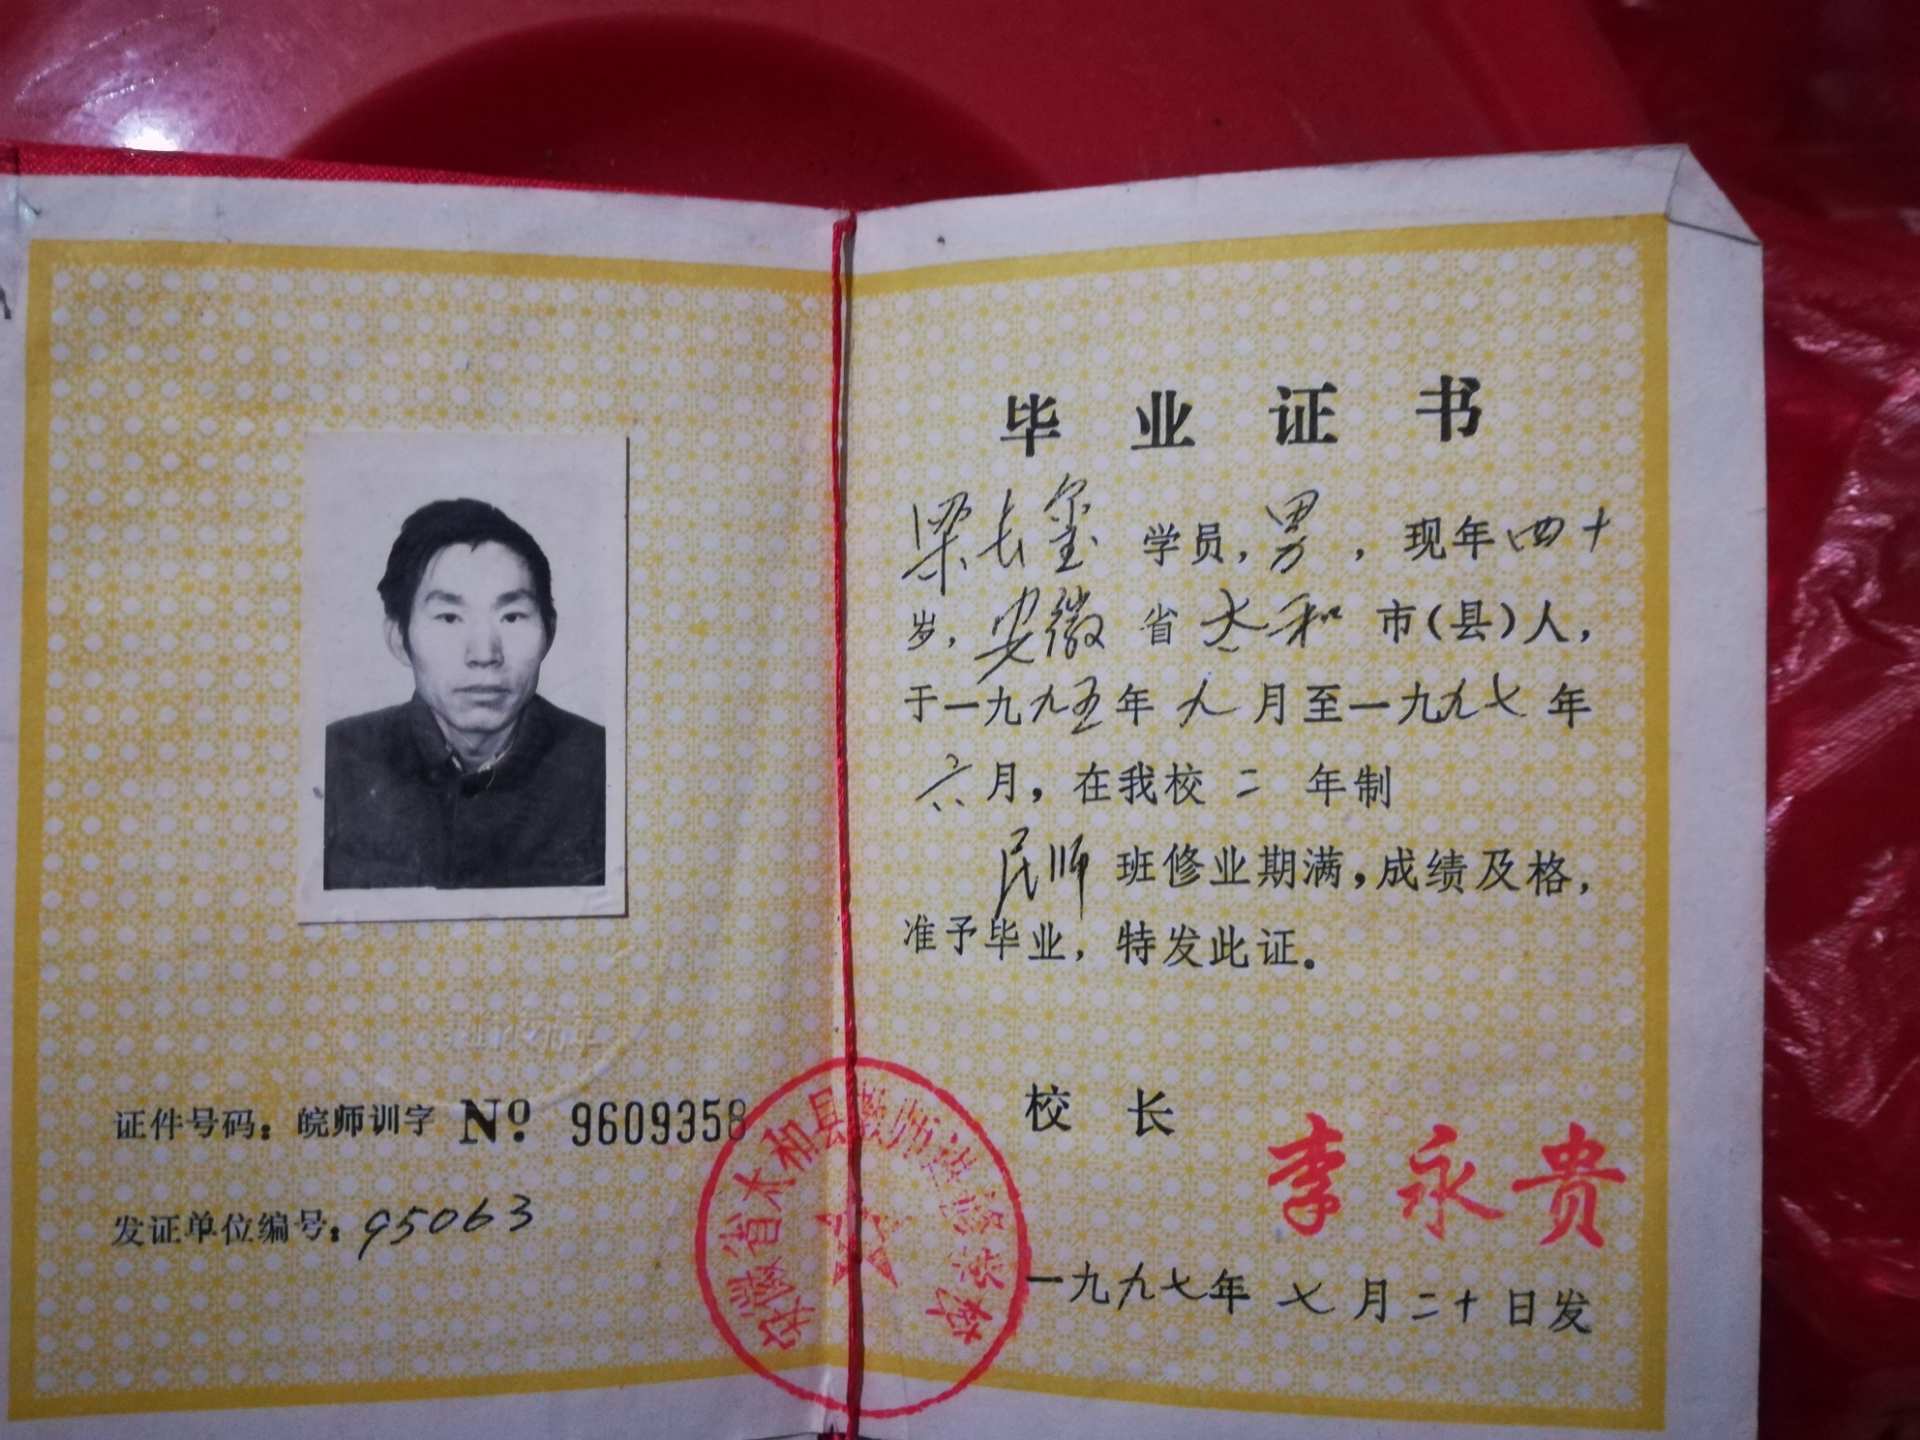 证件号码：皖师训字 № 9609358
发证单位编号：95063
毕业证书
梁长玺 学员，男，现年四十
岁，安徽省太和市（县）人，
于一九九五年九月至一九九七年
六月，在我校二年制
民师班修业期满，成绩及格，
准予毕业，特发此证。
校长
李永贵
一九九七年七月二十日发
安徽省太和县教师进修学校